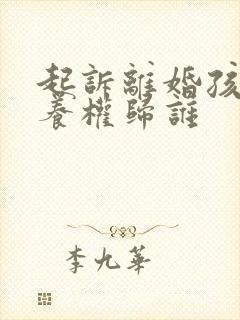 起訴離婚孩
養權歸誰
李九華